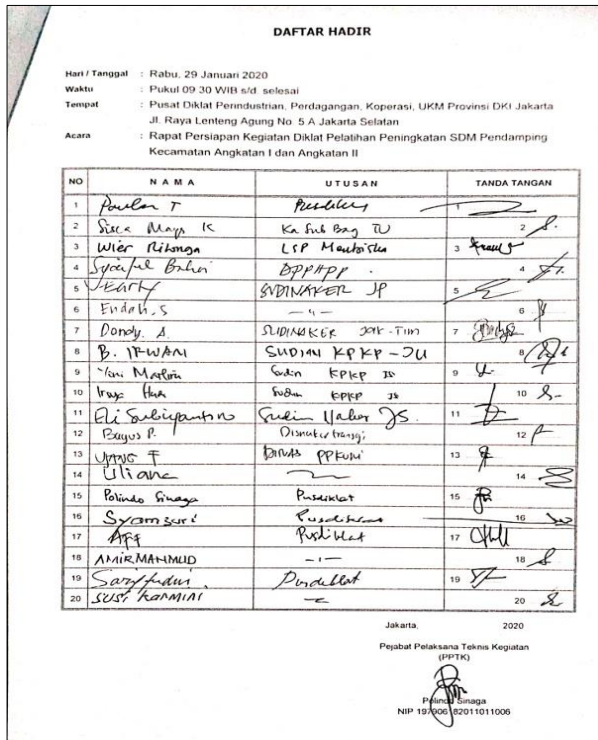 DAFTAR HADIR
Hari / Tanggal : Rabu, 29 Januari 2020
Waktu : Pukul 09 30 WIB s/d. selesai
Tempat : Pusat Diklat Perindustrian, Perdagangan, Koperasi, UKM Provinsi DKI Jakarta
Jl. Raya Lenteng Agung No. 5 A Jakarta Selatan
Acara : Rapat Persiapan Kegiatan Diklat Pelatihan Peningkatan SDM Pendamping
Kecamatan Angkatan I dan Angkatan II
NO NAMA UTUSAN TANDA TANGAN
1 T 1
2 Sisca Maya K Ka Sub Bag TU 2
3 Wier Ritonga LSP 3
4 Syaiful Bahri DPPAPP . 4
5 SUDINAKER JP 5
6 Endah. S - " - 6
7 Dondy. A. SUDINAKER JAK-TIM 7
8 B. IRWAN SUDIN KPKP - JU 8
9 Sudin KPKP 9
10 Sudin KPKP 10
11 Eli Sudin JS. 11
12 Bagus P. 12
13 UJANG F DINAS PPKUM 13
14 Uliana 14
15 Polindo Sinaga Pusdiklat 15
16 Syamsuri 16
17 Pusdiklat 17
18 AMIR MAHMUD - " - 18
19 Pusdiklat 19
20 SUSI KARMINI 20
Jakarta, 2020
Pejabat Pelaksana Teknis Kegiatan
(PPTK)
Sinaga
NIP